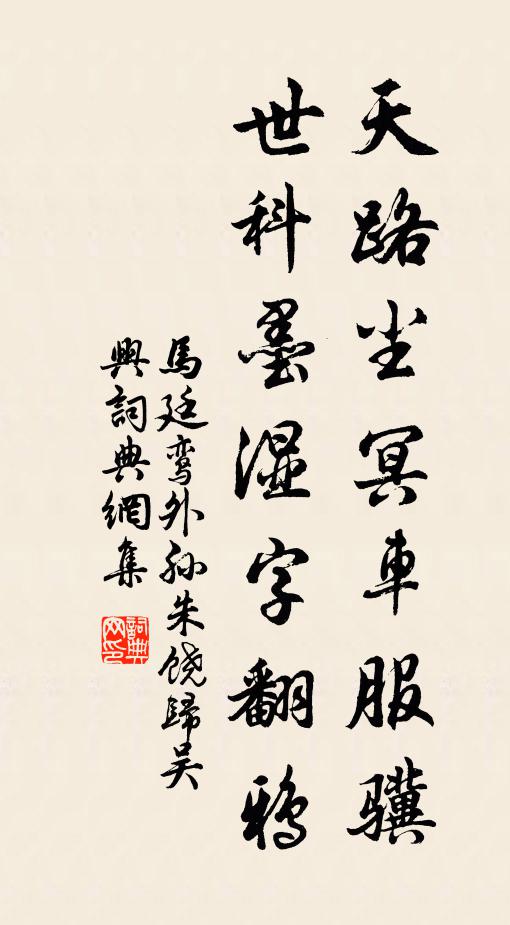 天路尘冥車服骥
世科墨湿字翻鸦
馬廷鸾外孙朱饶歸吴
興詞典網集
詞典
网印